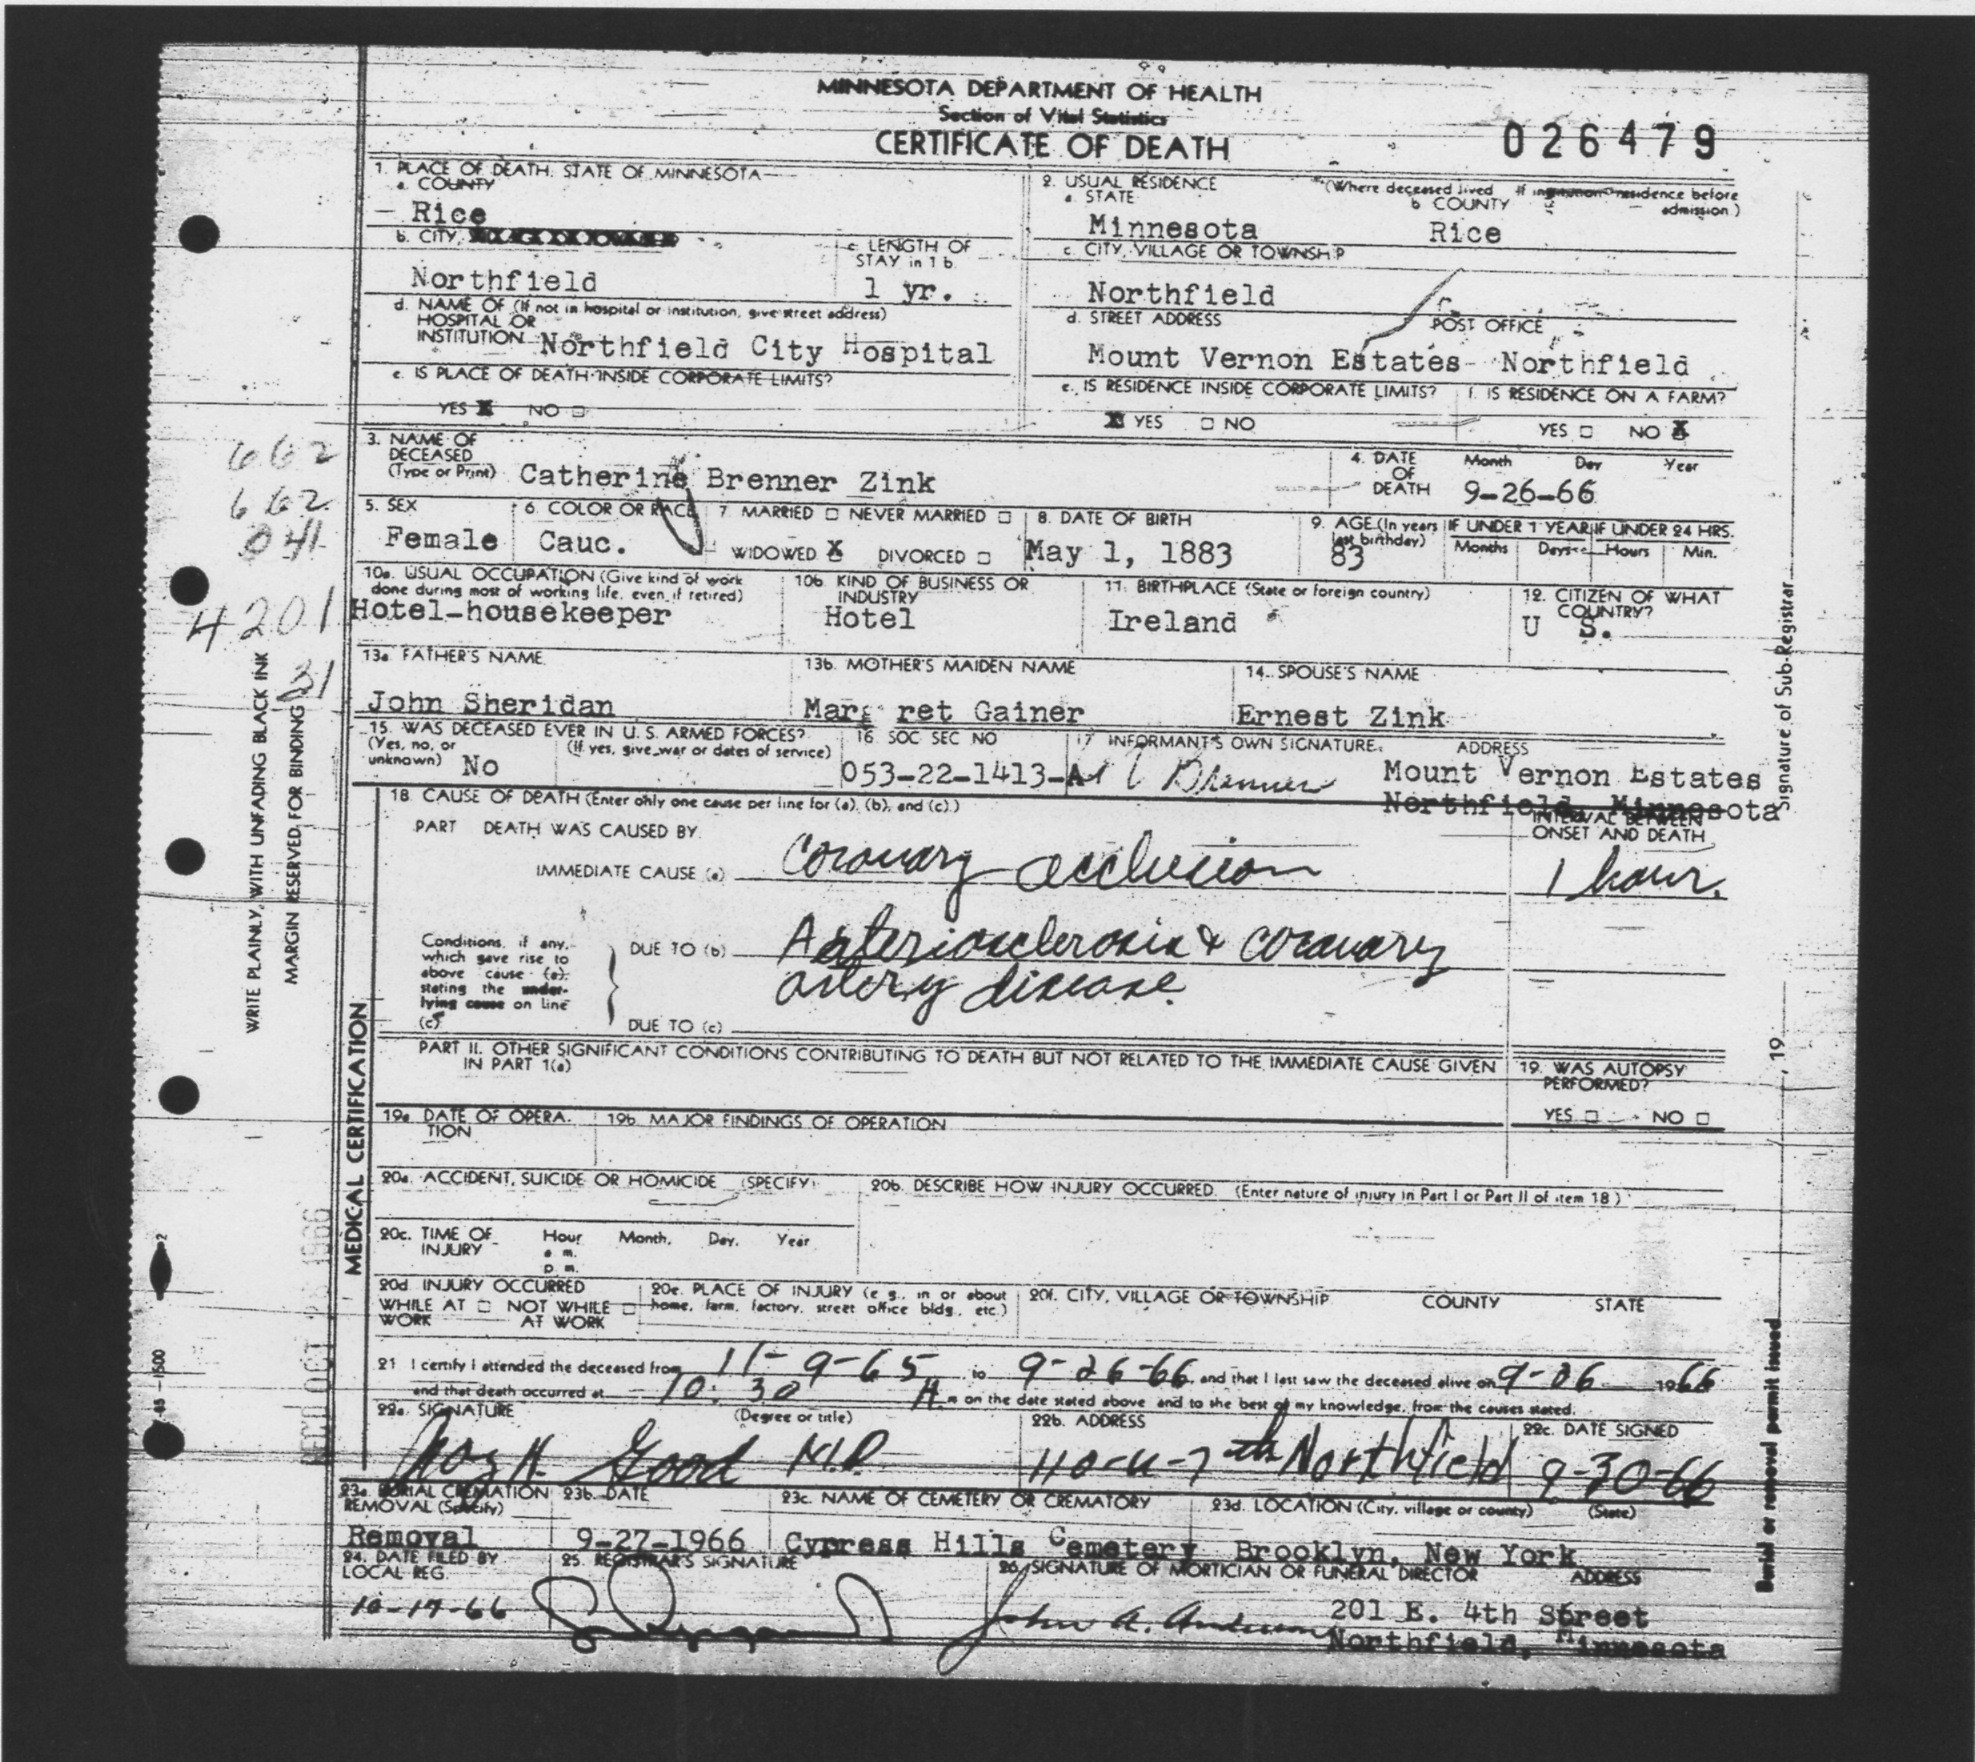 MINNESOTA DEPARTMENT OF HEALTH
Section of Vital Statistics
CERTIFICATE OF DEATH
026479
1. PLACE OF DEATH. STATE OF MINNESOTA
a. COUNTY
Rice
b. CITY,
Northfield
c. LENGTH OF STAY in 1 b
1 yr.
d. NAME OF (If not in hospital or institution, give street address)
HOSPITAL OR
INSTITUTION Northfield City Hospital
e. IS PLACE OF DEATH INSIDE CORPORATE LIMITS?
YES X NO □
2. USUAL RESIDENCE (Where deceased lived If institution residence before admission.)
a. STATE b COUNTY
Minnesota Rice
c. CITY, VILLAGE OR TOWNSHIP
Northfield
d. STREET ADDRESS POST OFFICE
Mount Vernon Estates Northfield
e. IS RESIDENCE INSIDE CORPORATE LIMITS?
X YES □ NO
f. IS RESIDENCE ON A FARM?
YES □ NO X
3. NAME OF
DECEASED
(Type or Print) Catherine Brenner Zink
4. DATE OF DEATH Month Day Year
9-26-66
5. SEX
Female
6. COLOR OR RACE
Cauc.
7. MARRIED □ NEVER MARRIED □
WIDOWED X DIVORCED □
8. DATE OF BIRTH
May 1, 1883
9. AGE (In years last birthday)
83
IF UNDER 1 YEAR IF UNDER 24 HRS.
Months Days Hours Min.
10a. USUAL OCCUPATION (Give kind of work
done during most of working life, even if retired)
Hotel-housekeeper
10b KIND OF BUSINESS OR INDUSTRY
Hotel
11. BIRTHPLACE (State or foreign country)
Ireland
12. CITIZEN OF WHAT COUNTRY?
U S.
13a FATHER'S NAME
John Sheridan
13b. MOTHER'S MAIDEN NAME
Marg ret Gainer
14. SPOUSE'S NAME
Ernest Zink
15. WAS DECEASED EVER IN U. S. ARMED FORCES?
(Yes, no, or unknown) (If yes, give war or dates of service)
No
16 SOC SEC NO
053-22-1413-A
17 INFORMANT'S OWN SIGNATURE. ADDRESS
Brenner Mount Vernon Estates
Northfield, Minnesota
18 CAUSE OF DEATH (Enter only one cause per line for (a), (b), and (c).)
INTERVAL BETWEEN
ONSET AND DEATH
PART DEATH WAS CAUSED BY
IMMEDIATE CAUSE (a) Coronary occlusion 1 hour.
Conditions, if any,
which gave rise to
above cause (a)
stating the under-
lying cause on line
(c)
DUE TO (b) Arteriosclerosis & coronary
artery disease.
DUE TO (c)
PART II. OTHER SIGNIFICANT CONDITIONS CONTRIBUTING TO DEATH BUT NOT RELATED TO THE IMMEDIATE CAUSE GIVEN
IN PART 1(a)
19. WAS AUTOPSY PERFORMED?
YES □ NO □
19a DATE OF OPERA-
TION
19b MAJOR FINDINGS OF OPERATION
20a. ACCIDENT, SUICIDE OR HOMICIDE (SPECIFY)
20b. DESCRIBE HOW INJURY OCCURRED. (Enter nature of injury in Part I or Part II of item 18)
20c. TIME OF INJURY Hour Month, Day, Year
a. m.
p. m.
20d INJURY OCCURRED
WHILE AT WORK □ NOT WHILE AT WORK □
20e. PLACE OF INJURY (e g., in or about
home, farm, factory, street office bldg., etc.)
20f. CITY, VILLAGE OR TOWNSHIP COUNTY STATE
21 I certify I attended the deceased from 11-9-65 to 9-26-66, and that I last saw the deceased alive on 9-26 1966
and that death occurred at 10:30 A. m on the date stated above and to the best of my knowledge, from the causes stated.
22a. SIGNATURE (Degree or title)
Good M.D.
22b. ADDRESS
Northfield
22c. DATE SIGNED
9-30-66
23a. BURIAL CREMATION
REMOVAL (Specify)
Removal
23b. DATE
9-27-1966
23c. NAME OF CEMETERY OR CREMATORY
Cypress Hills Cemetery
23d. LOCATION (City, village or county) (State)
Brooklyn, New York
24. DATE FILED BY
LOCAL REG.
10-17-66
25. REGISTRAR'S SIGNATURE
26. SIGNATURE OF MORTICIAN OR FUNERAL DIRECTOR ADDRESS
John A. Anderson 201 E. 4th Street
Northfield, Minnesota
662
662
041
4201
31
WRITE PLAINLY, WITH UNFADING BLACK INK
MARGIN RESERVED FOR BINDING
MEDICAL CERTIFICATION
Signature of Sub-Registrar
, 19
Burial or removal permit issued